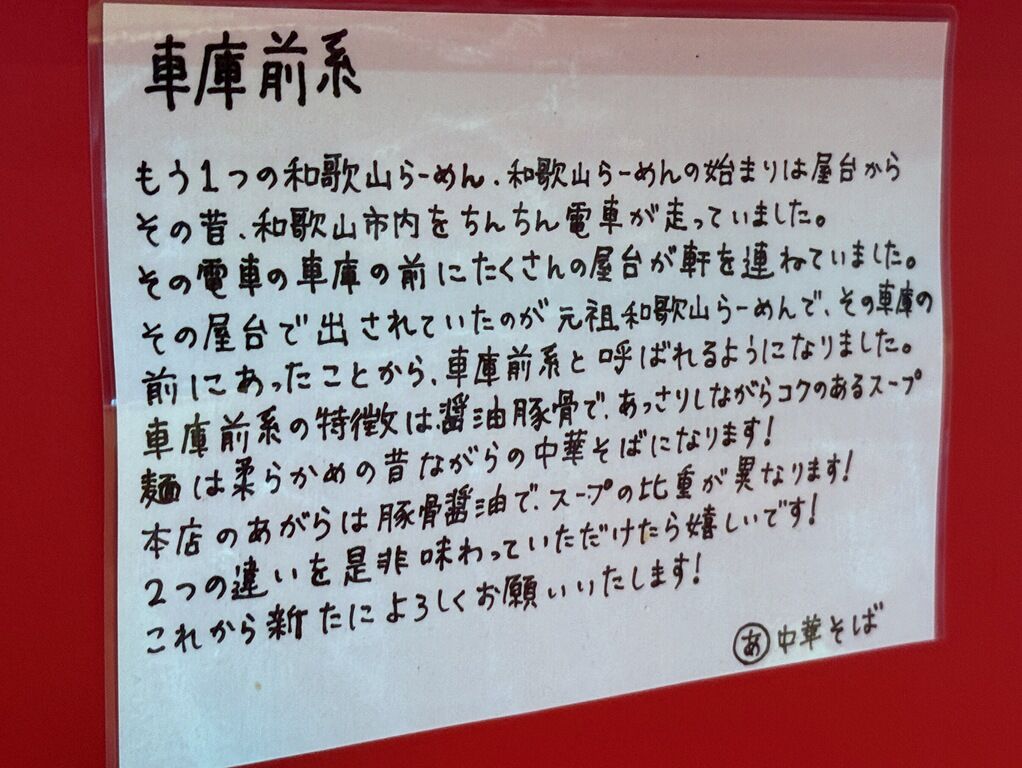 車庫前系
もう1つの和歌山らーめん、和歌山らーめんの始まりは屋台から
その昔、和歌山市内をちんちん電車が走っていました。
その電車の車庫の前にたくさんの屋台が軒を連ねていました。
その屋台で出されていたのが元祖和歌山らーめんで、その車庫の
前にあったことから、車庫前系と呼ばれるようになりました。
車庫前系の特徴は醤油豚骨で、あっさりしながらコクのあるスープ
麺は柔らかめの昔ながらの中華そばになります!
本店のあがらは豚骨醤油で、スープの比重が異なります!
2つの違いを是非味わっていただけたら嬉しいです!
これから新たによろしくお願いいたします!
あ 中華そば